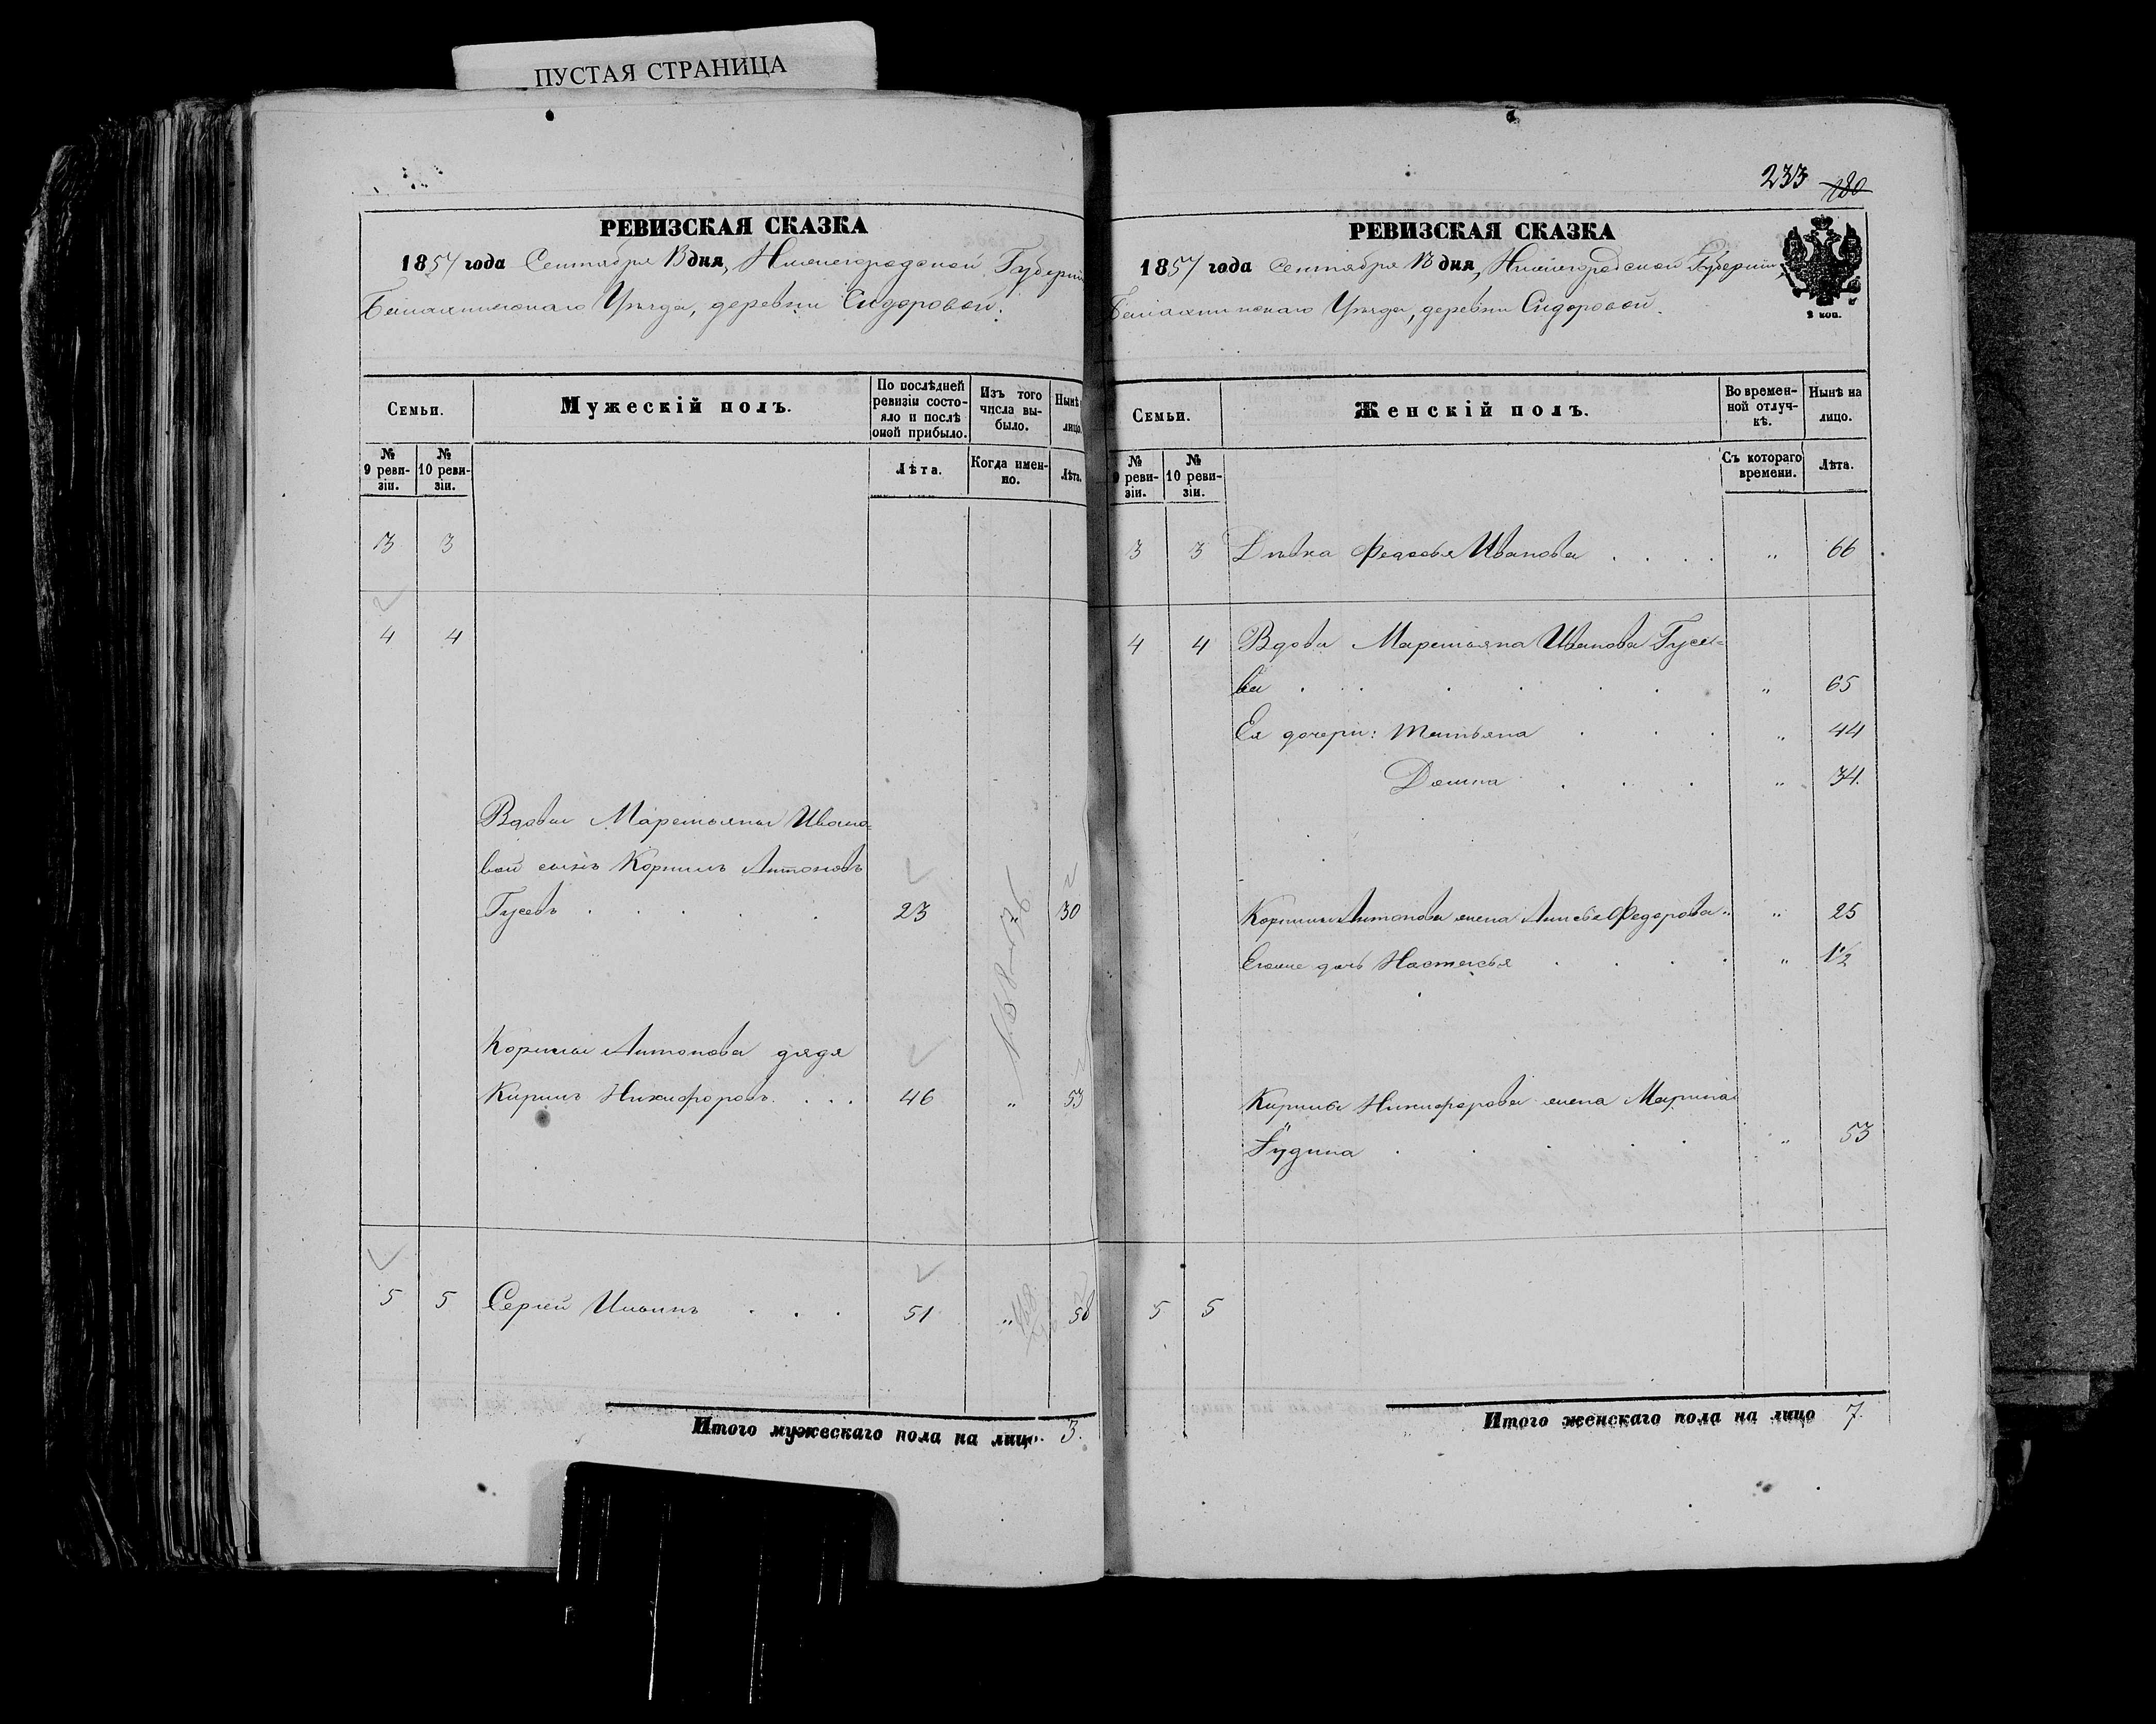 ПУСТАЯ СТРАНИЦА
РЕВИЗСКАЯ СКАЗКА
1857 года Сентября 13 дня, Нижегородской Губерніи
Балахнинскаго Уѣзда, деревни Сидоровой.
Семьи.
Мужескій полъ.
По послѣдней ревизіи состояло и послѣ оной прибыло.
Изъ того числа выбыло.
Нынѣ
лицо.
№ 9 ревизіи.
№ 10 ревизіи.
Лѣта.
Когда именно.
Лѣта.
3 3
4 4
Вдовы Маремьяны Ивано-
вой сынъ Корнилъ Антоновъ
Гусевъ . . . . . 23 " 30
Корнилы Антонова дядя
Кирилъ Никифоровъ . . . 46 " 53
5 5 Сергей Ильинъ . . . 51 " 58
Итого мужескаго пола на лицо 3.
233 180
РЕВИЗСКАЯ СКАЗКА
1857 года Сентября 13 дня, Нижегородской Губерніи
Балахнинскаго Уѣзда, деревни Сидоровой.
2 коп.
Семьи.
Женскій полъ.
Во временной отлучкѣ.
Нынѣ на лицо.
№ 9 ревизіи.
№ 10 ревизіи.
Съ котораго времени.
Лѣта.
3 3 Дѣвка Федосья Иванова . . . . " 66
4 4 Вдова Маремьяна Иванова Гусе-
ва . . . . . . . " 65
Ея дочери: Татьяна . . . " 44
Домна . . . " 34.
Корнилы Антонова жена Анисья Федорова " " 25
Ихъ дочь Настасья . . . . " 1½
Кирилы Никифорова жена Марина
Гудина . . . . . " 53
5 5
Итого женскаго пола на лицо 7.